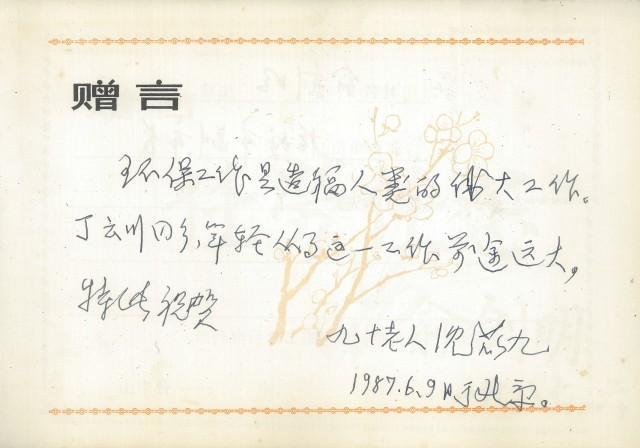 赠言
环保工作是造福人类的伟大工作。
丁云川同乡，年轻从事这一工作前途远大，
特此祝贺
九十老人沈兹九
1987.6.9日于北京。